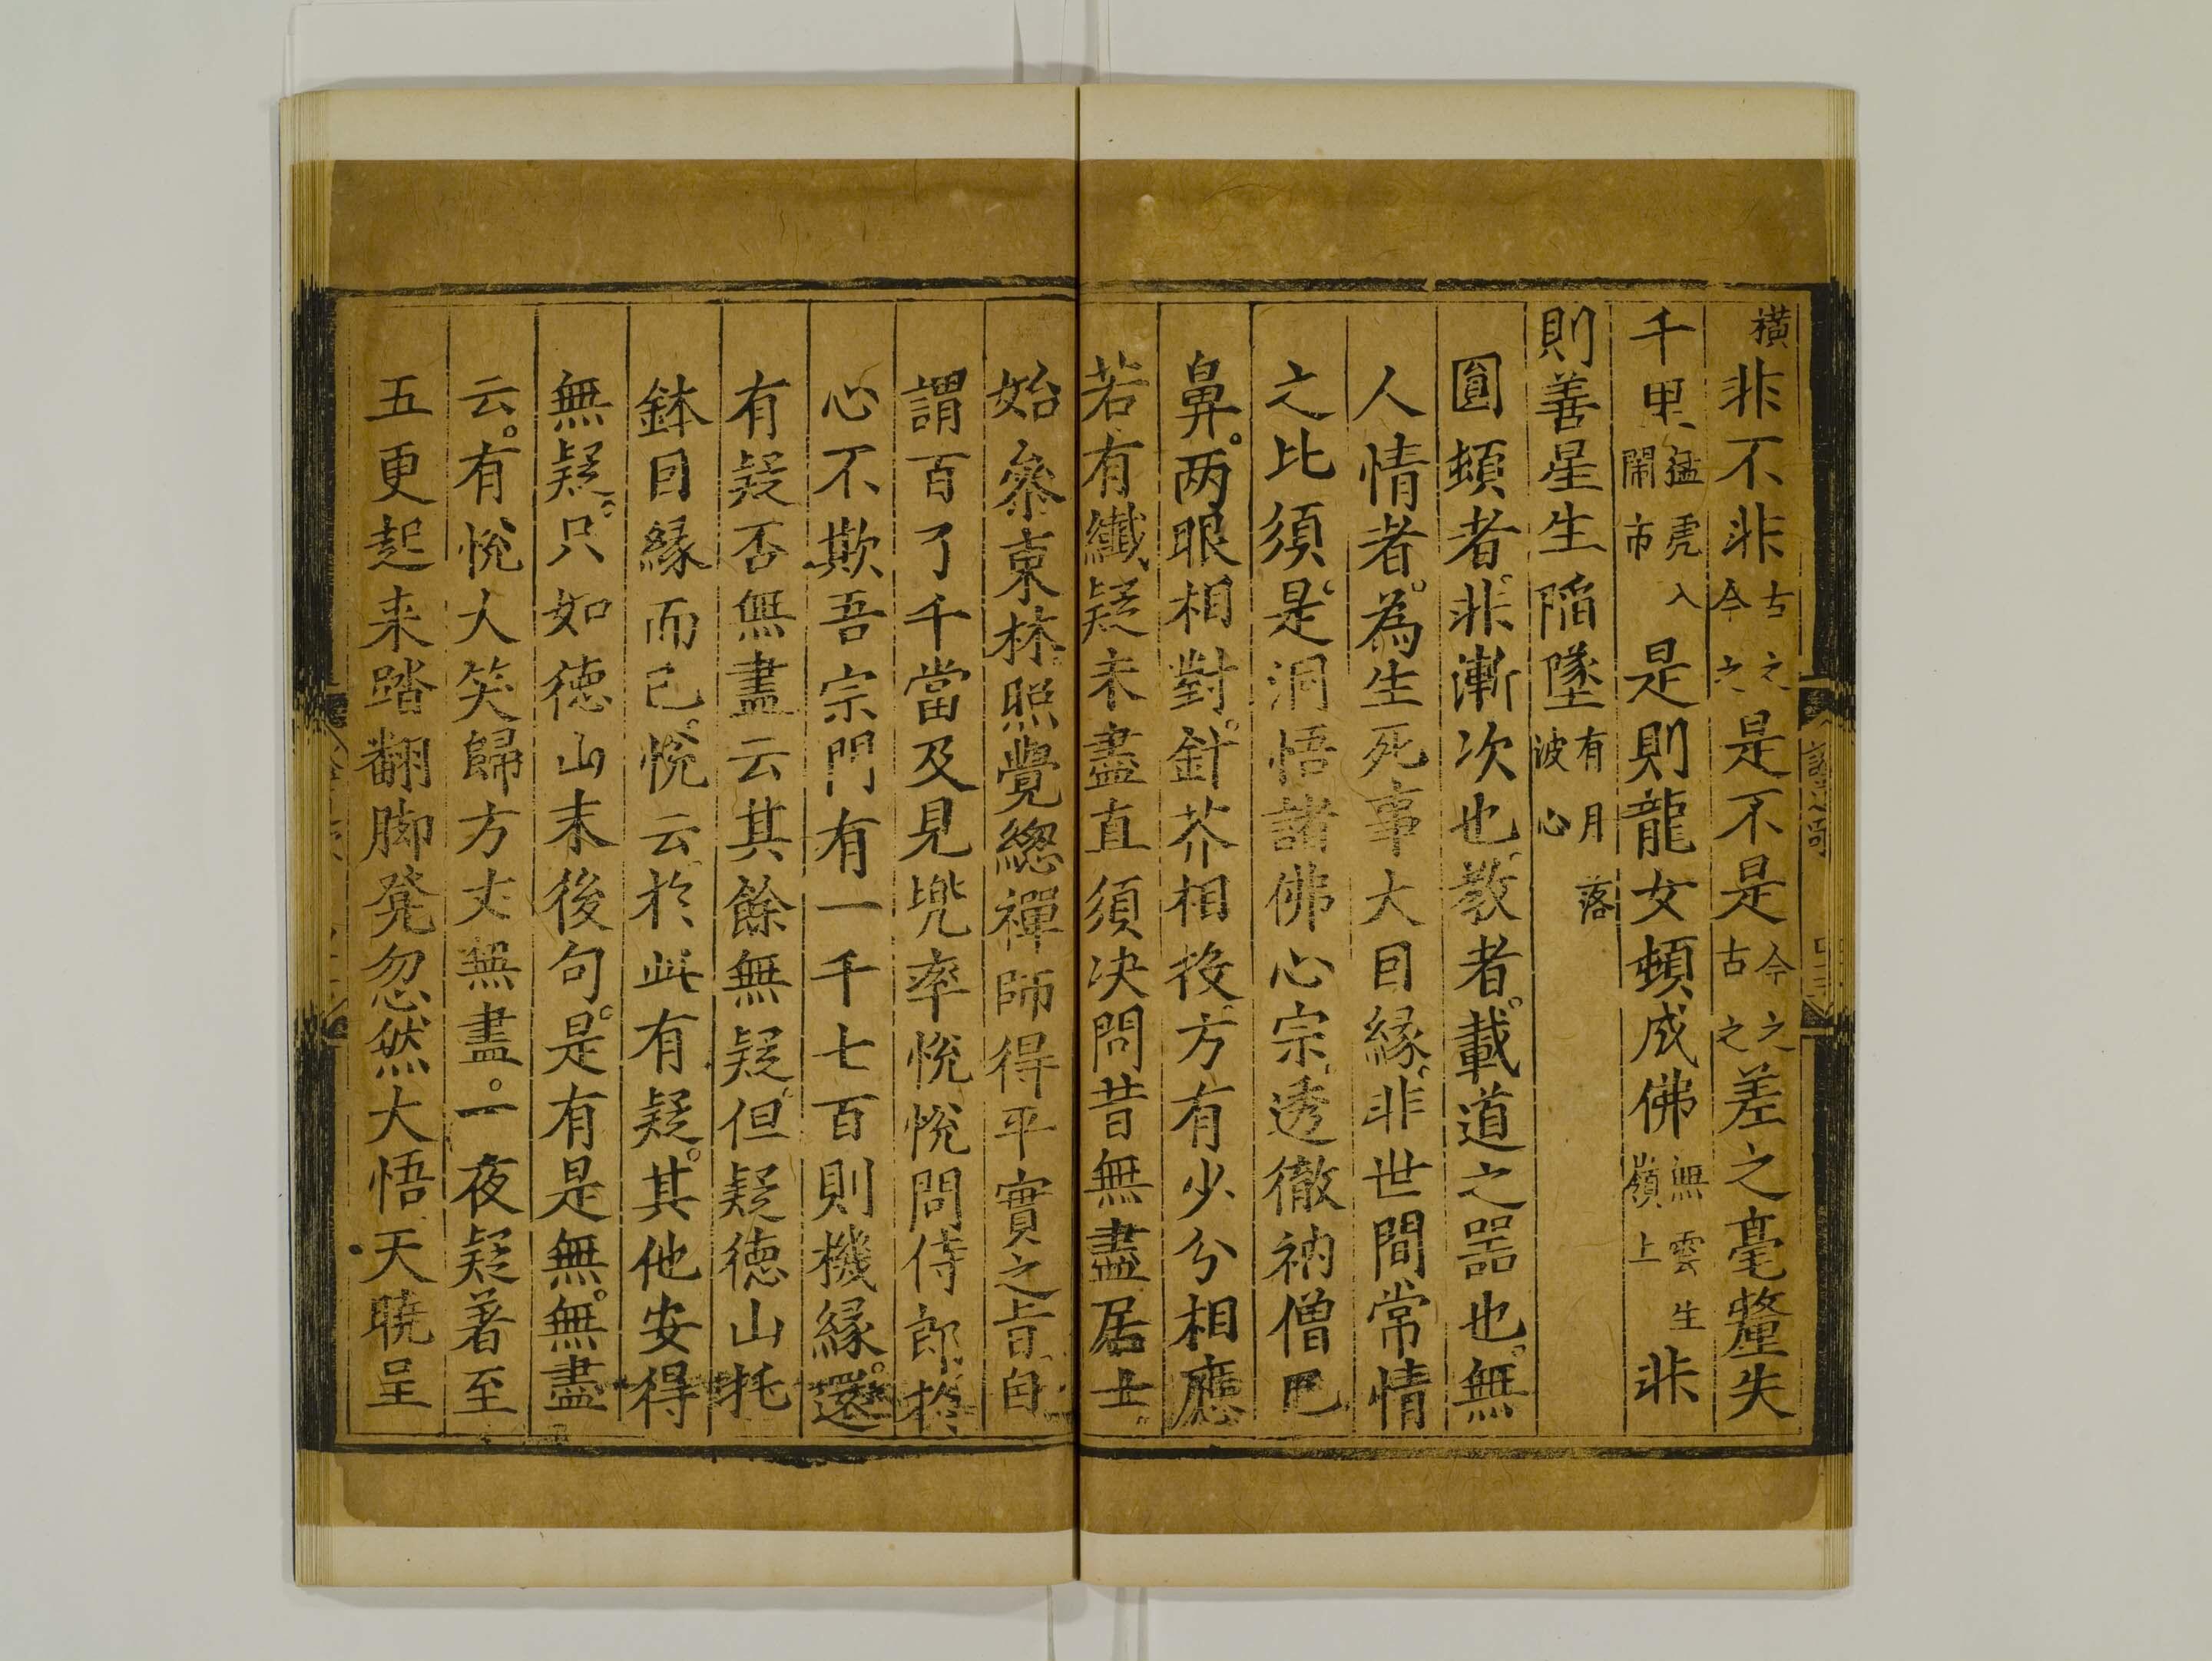 橫非不非古之今之是不是今之古之差之毫釐失
千里猛虎入閙市是則龍女頓成佛無雲生嶺上非
則善星生陷墜有月落波心
圓頓者非漸次也教者載道之噐也無
人情者為生死事大因緣非世間常情
之比須是洞悟諸佛心宗透徹衲僧巴
鼻两眼相對針芥相投方有少分相應
若有纎疑未盡直須决問昔無盡居士
始叅東林照覺總禪師得平實之旨自
謂百了千當及見兠率悅悅問侍郎於
心不欺吾宗門有一千七百則機緣還
有疑否無盡云其餘無疑但疑德山托
鉢因緣而已悅云於此有疑其他安得
無疑只如德山末後句是有是無無盡
云有悅大笑歸方丈無盡一夜疑著至
五更起来踏翻脚凳忽然大悟天曉呈